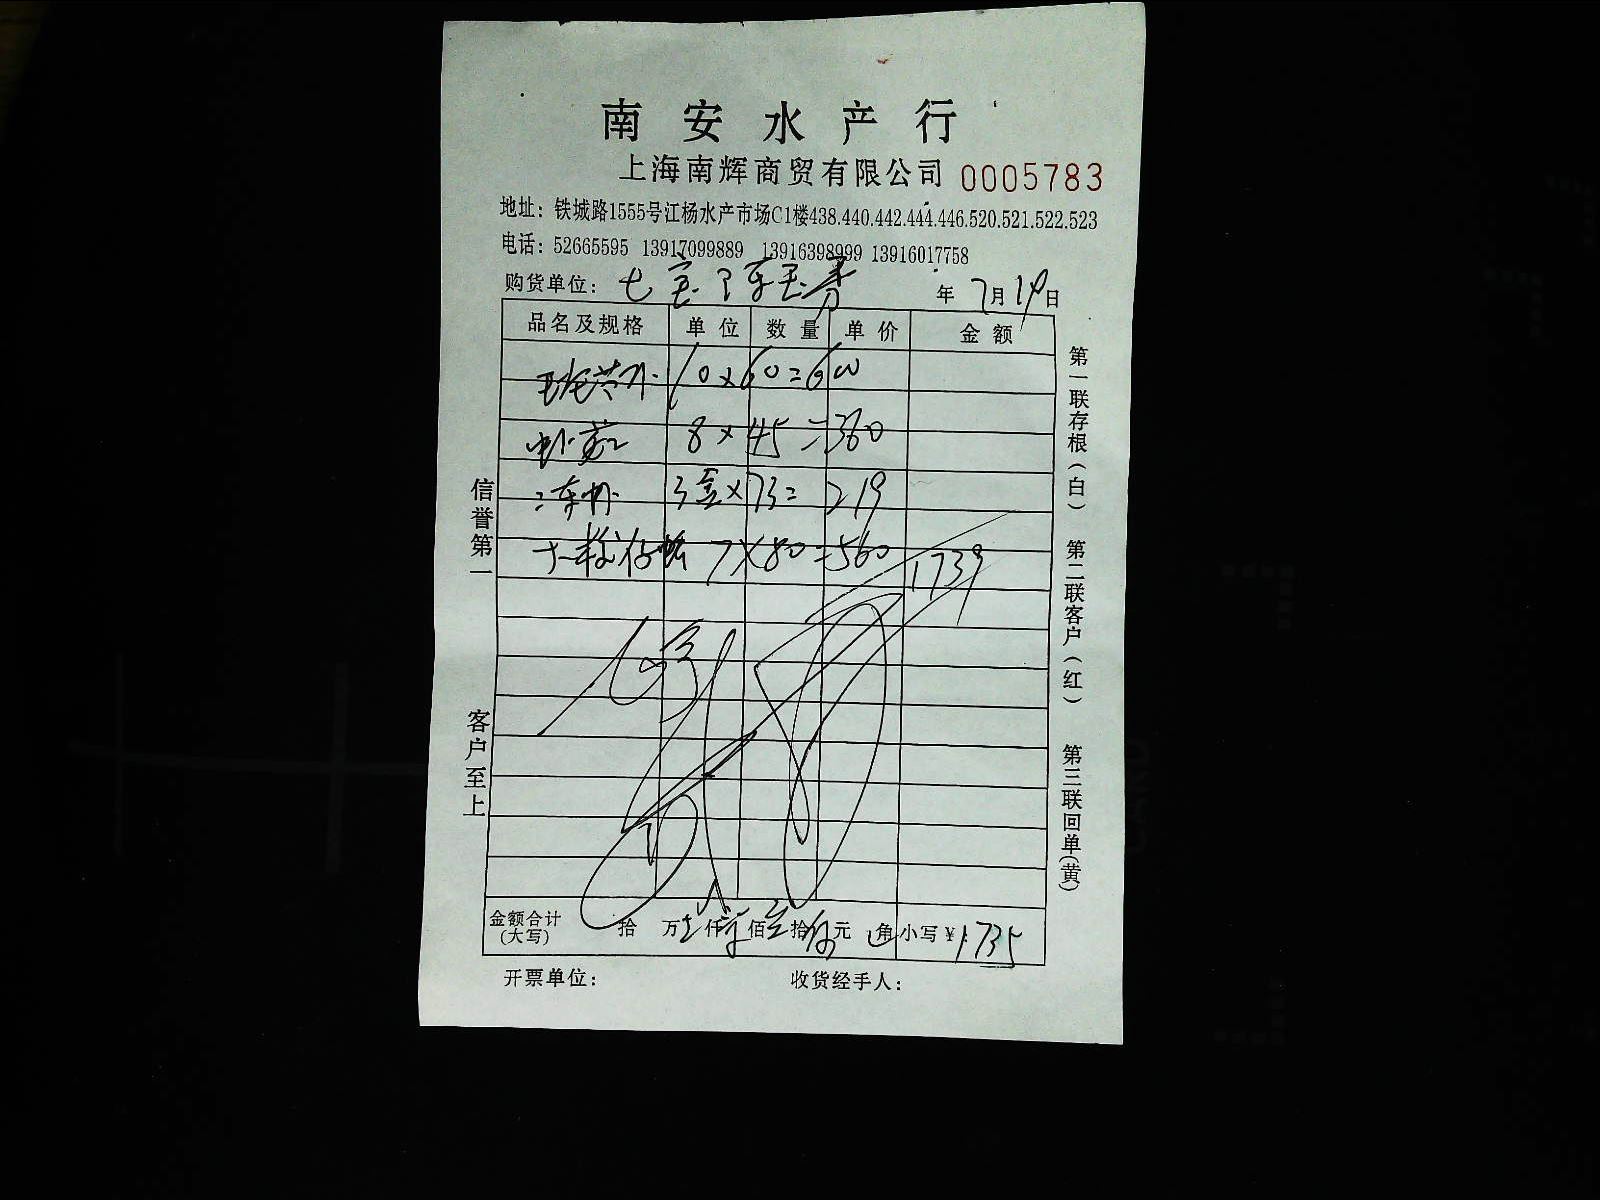 南安水产行
上海南辉商贸有限公司 0005783
地址：铁城路1555号江杨水产市场C1楼438.440.442.444.446.520.521.522.523
电话：52665595 13917099889 13916398999 13916017758
购货单位：七宝 年 7月19日
品名及规格 单位 数量 单价 金额
10×60=600
8×45=360
3盒×73=219
7×80=560 1739
金额合计(大写) 拾 万 仟 佰 拾 元 角 小写¥ 1735
开票单位： 收货经手人：
信誉第一
客户至上
第一联存根(白)
第二联客户(红)
第三联回单(黄)